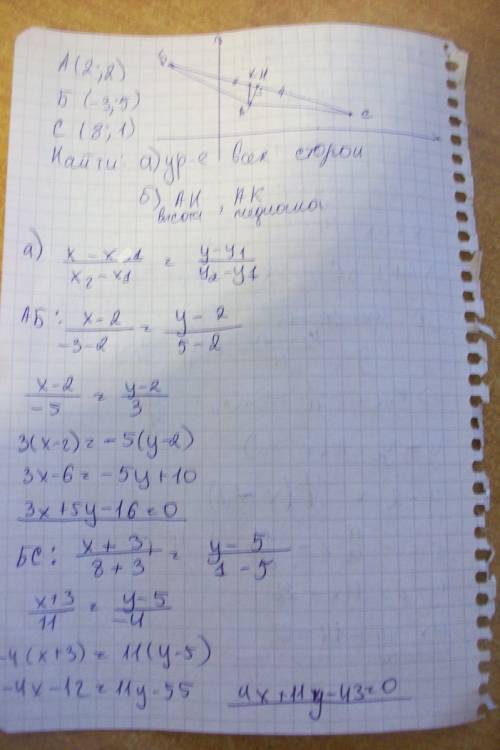 А(2;2)
Б(-3;5)
С(8;1)
Б К Н А С
Найти а) ур-е всех сторон
б) АН высота, АК медиана
а) (x - x1)/(x2 - x1) = (y - y1)/(y2 - y1)
АБ: (x - 2)/(-3 - 2) = (y - 2)/(5 - 2)
(x - 2)/(-5) = (y - 2)/3
3(x-2) = -5(y-2)
3x-6 = -5y+10
3x+5y-16=0
БС: (x + 3)/(8 + 3) = (y - 5)/(1 - 5)
(x+3)/11 = (y-5)/(-4)
-4(x+3) = 11(y-5)
-4x-12 = 11y-55
4x+11y-43=0